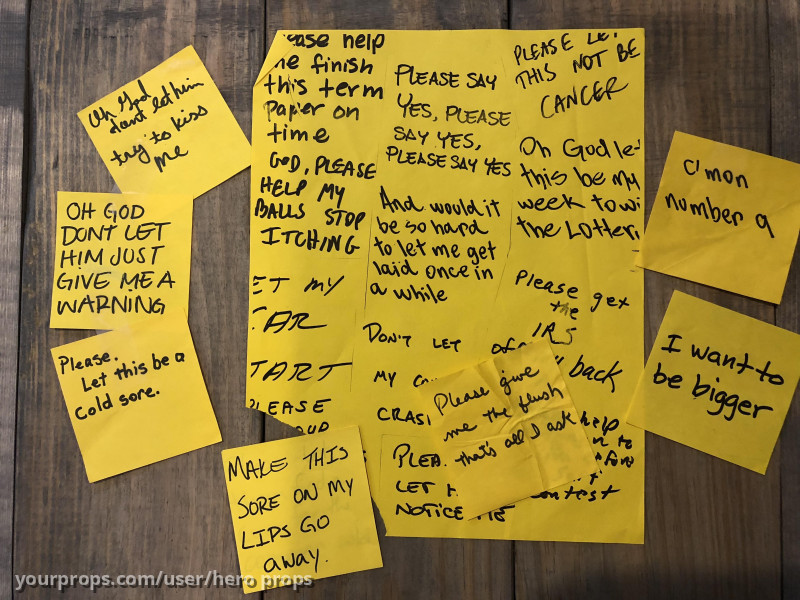 Oh God
dont let him
try to kiss
me
OH GOD
DONT LET
HIM JUST
GIVE ME A
WARNING
Please.
Let this be a
cold sore.
MAKE THIS
SORE ON MY
LIPS GO
away.
ease help
me finish
this term
paper on
time
GOD, PLEASE
HELP MY
BALLS STOP
ITCHING
ET MY
CAR
TART
LEASE
PLEASE SAY
YES, PLEASE
SAY YES,
PLEASE SAY YES
And would it
be so hard
to let me get
laid once in
a while
DON'T LET
MY
CRAS
PLEA
LET
NOTICE ME
PLEASE LET
THIS NOT BE
CANCER
Oh God let
this be my
week to wi
the Lotteri
Please get
the
IRS
back
help
to
contest
Please give
me the flush
that's all I ask
c'mon
number 9
I want to
be bigger
yourprops.com/user/hero props